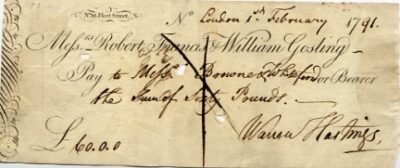 No. 19. Fleet Street.
No London 1st February 1791.
Messrs. Robert, Francis & William Gosling
Pay to Messrs or Bearer
the Sum of Sixty Pounds.
£60.0.0 Warren Hastings